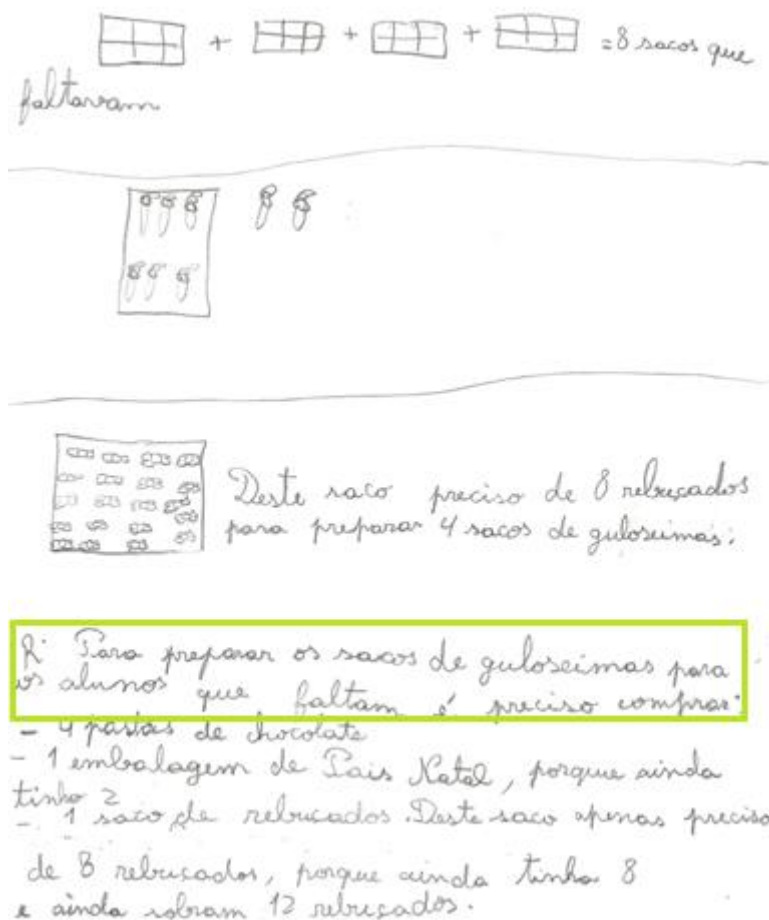 + + + = 8 sacos que
faltavam
Deste saco preciso de 8 rebuçados
para preparar 4 sacos de guloseimas.
R: Para preparar os sacos de guloseimas para
os alunos que faltam é preciso comprar:
- 4 pastas de chocolate
- 1 embalagem de Pais Natal, porque ainda
tinha 2
- 1 saco de rebuçados. Deste saco apenas preciso
de 8 rebuçados, porque ainda tinha 8
e ainda sobram 12 rebuçados.